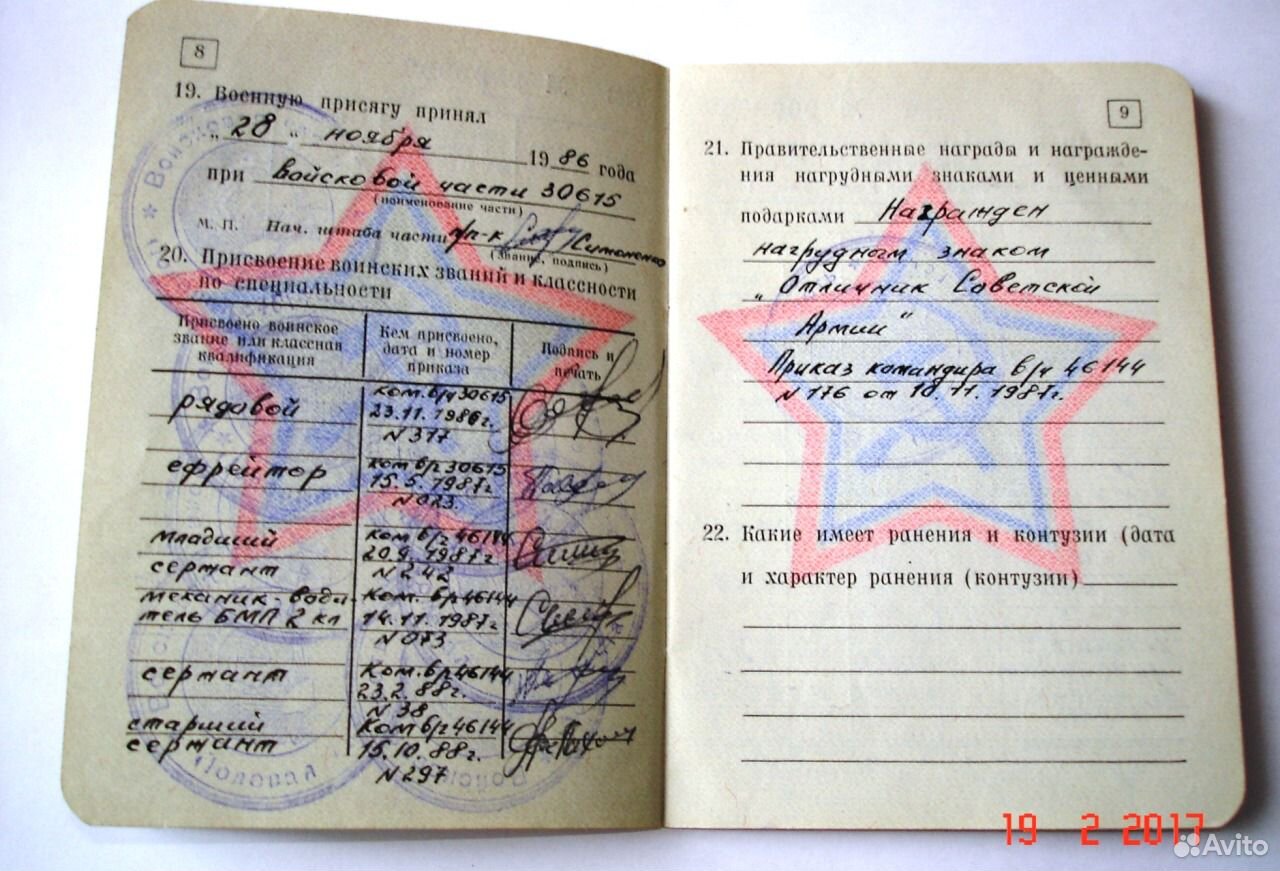 8
19. Военную присягу принял
„28“ ноября 1986 года
при войсковой части 30615
(наименование части)
М. П. Нач. штаба части п/п-к Симоненко
(звание, подпись)
20. Присвоение воинских званий и классности
по специальности
Присвоено воинское звание или классная квалификация
Кем присвоено, дата и номер приказа
Подпись и печать
рядовой
ком. в/ч 30615
23.11.1986г.
N 317
ефрейтор
ком в/ч 30615
15.5.1987г
N 023.
младший
сержант
ком в/ч 46144
20.9.1987г
N 242
механик-води
тель БМП 2 кл
ком. в/ч 46144
14.11.1987г
N 073
сержант
ком. в/ч 46144
23.2.88г.
N 38
старший
сержант
ком в/ч 46144
15.10.88г.
N 297
9
21. Правительственные награды и награжде-
ния нагрудными знаками и ценными
подарками Награжден
нагрудным знаком
„Отличник Советской
Армии"
Приказ командира в/ч 46144
N 176 от 10.11.1987г.
22. Какие имеет ранения и контузии (дата
и характер ранения (контузии)
19 2 2017
Avito